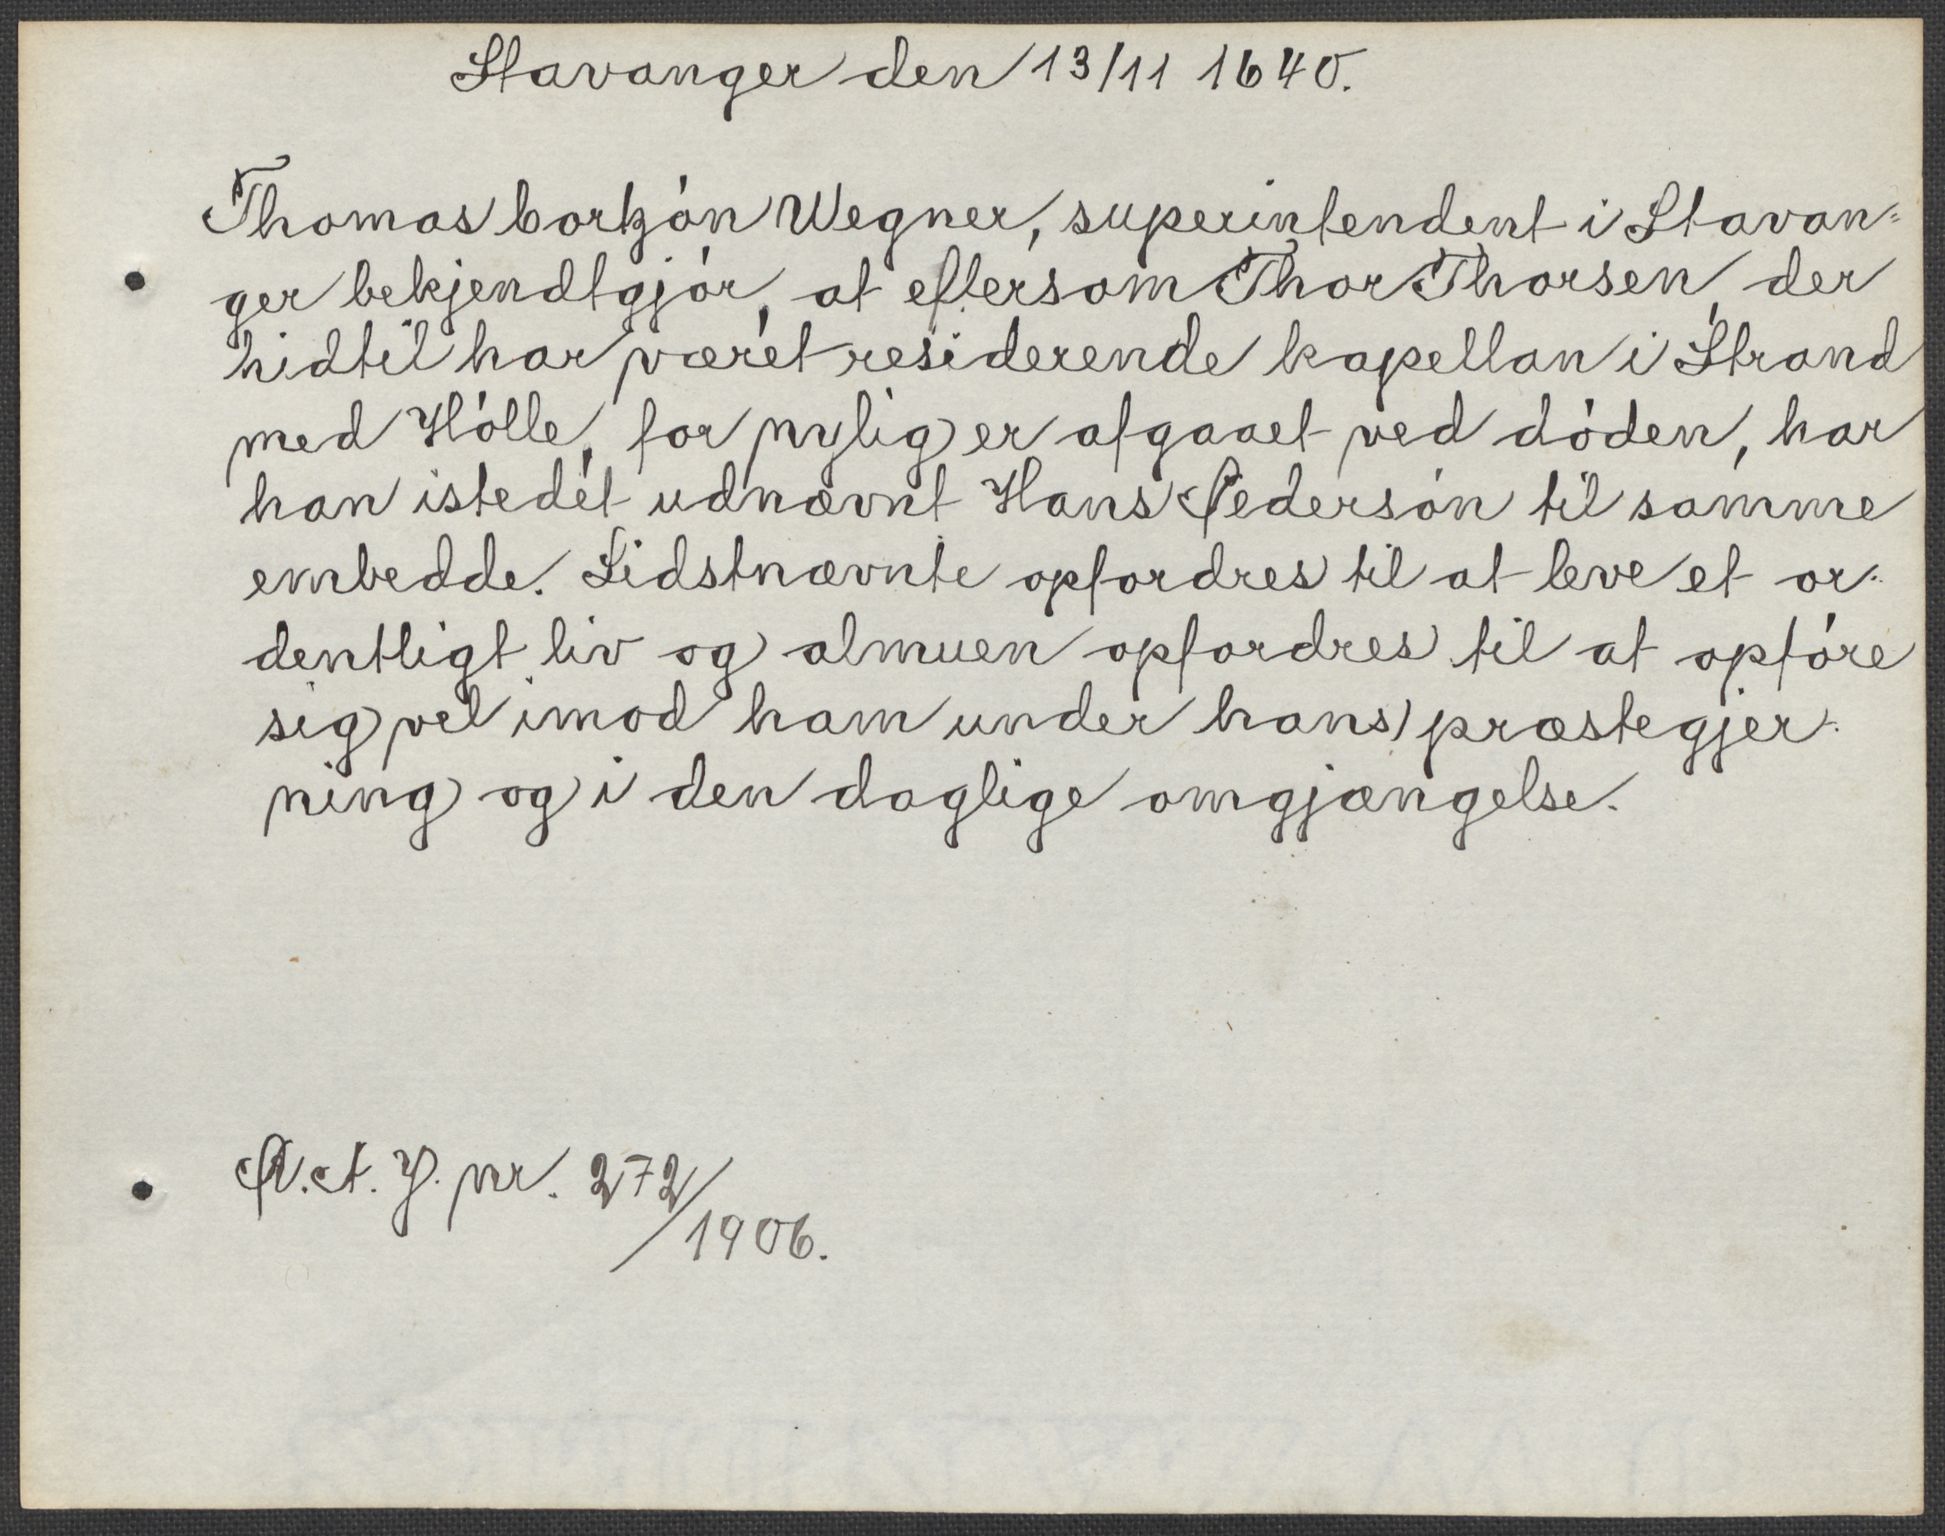 Stavanger den 13/11 1640.
Thomas Cortzón Wegner, superintendent i Stavan=
ger bekjendtgjór, at eftersom Thor Thorsen, der
hidtil har været residerende kapellan i Strand
med Hólle, for nylig er afgaaet ved dóden, har
han istedet udnævnt Hans Pedersón til samme
embedde. Sidstnævnte opfordres til at leve et or-
dentligt liv og almuen opfordres til at opfóre
sig vel imod ham under hans præstegjer-
ning og i den daglige omgjængelse.
R.A. J. nr. 272/1906.